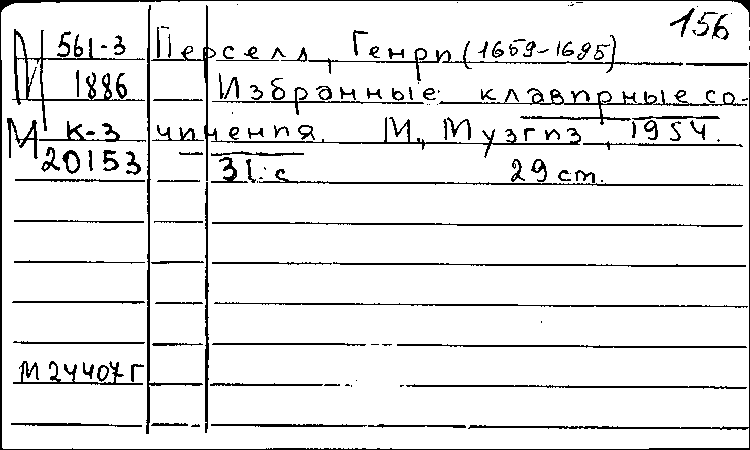 156
М 561-3 Перселл, Генри (1659-1695)
1886 Избранные клавирные со-
М К-3 чинения. М., Музгиз, 1954.
20153 31 с 29 cm.
М 24407 Г